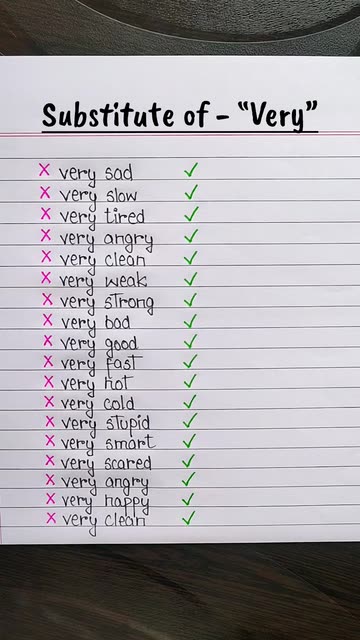 Substitute of - “Very”
✗ very sad ✓
✗ very slow ✓
✗ very tired ✓
✗ very angry ✓
✗ very clean ✓
✗ very weak ✓
✗ very strong ✓
✗ very bad ✓
✗ very good ✓
✗ very fast ✓
✗ very hot ✓
✗ very cold ✓
✗ very stupid ✓
✗ very smart ✓
✗ very scared ✓
✗ very angry ✓
✗ very happy ✓
✗ very clean ✓